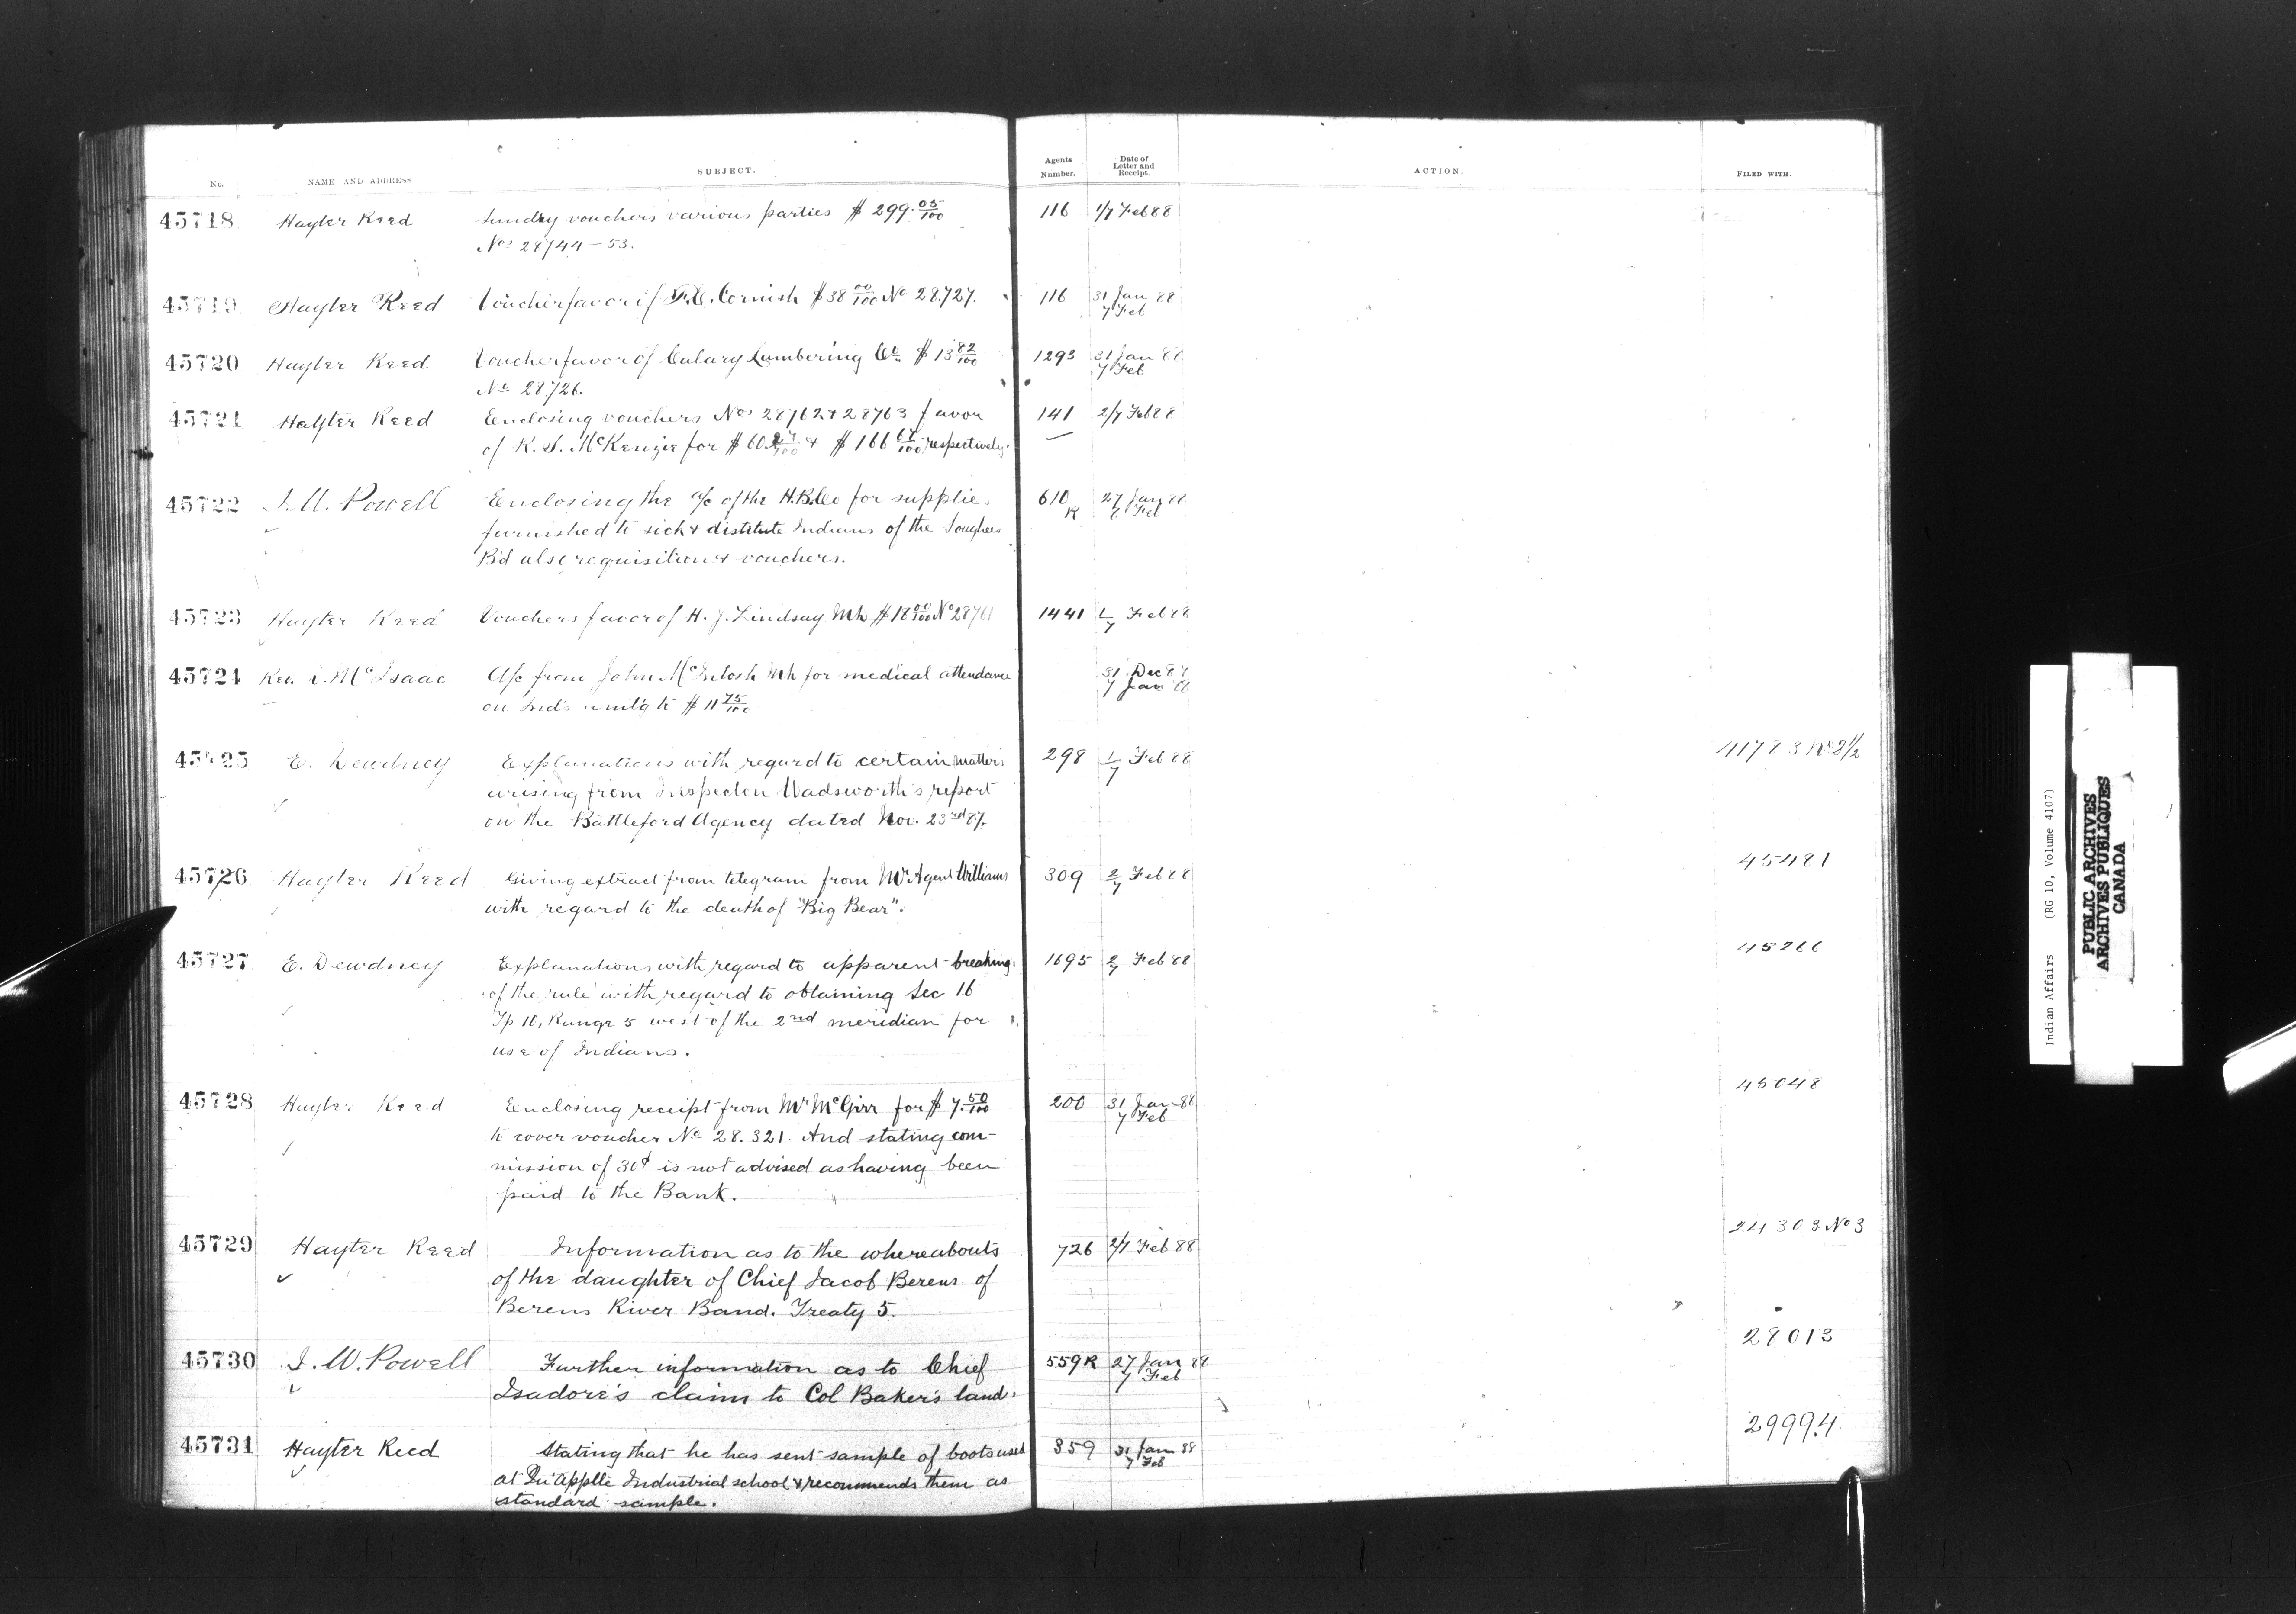 No. NAME AND ADDRESS. SUBJECT. Agents Number. Date of Letter and Receipt. ACTION. FILED WITH.
45718 Hayter Reed Sundry vouchers various parties $ 299.05/100 116 1/7 Feb 88
Nos 28744-53.
45719 Hayter Reed Voucher favor of F.C. Cornish $38 00/100 No 28.727. 116 31 Jan 88
7 Feb
45720 Hayter Reed Voucher favor of Calary Lumbering Co. $ 13 82/100 1293 31 Jan 88
7 Feb
No 28726.
45721 Hayter Reed Enclosing vouchers Nos 28762 & 28763 favor 141 2/7 Feb 88
of K. S. McKenzie for $ 60 & $ 166 67/100 respectively.
45722 I. W. Powell Enclosing the a/c of the H.B.Co for supplies 610 R 27 Jan 88
Feb
furnished to sick & distitute Indians of the Songhees
B'd also requisition & vouchers.
45723 Hayter Reed Vouchers favor of H. J. Lindsay $18 00/100 No 28761 1441 1/7 Feb 88
45724 Rev. McIsaac A/c from John McIntosh for medical attendance 31 Dec 87
7 Jan
on Ind's amt'g to $ 11 75/100
45725 E. Dewdney Explanations with regard to certain matters 298 1/7 Feb 88 41783 No 2 1/2
arising from Inspector Wadsworth's report
on the Battleford Agency dated Nov. 23rd 87.
45726 Hayter Reed Giving extract from telegram from Mr Agent Williams 309 2/7 Feb 88 45481
with regard to the death of "Big Bear".
45727 E. Dewdney Explanations with regard to apparent breaking 1695 2/7 Feb 88 45266
of the rule with regard to obtaining Sec 16
Tp 11, Range 5 west of the 2nd meridian for
use of Indians.
45728 Hayter Reed Enclosing receipt from Mr McGirr for $ 7.50/100 200 31 Jan 88 45048
7 Feb
to cover voucher No 28.321. And stating com-
mission of 30¢ is not advised as having been
paid to the Bank.
45729 Hayter Reed Information as to the whereabouts 726 2/7 Feb 88 24303 No 3
of the daughter of Chief Jacob Berens of
Berens River Band. Treaty 5.
45730 I. W. Powell Further information as to Chief 559 R 27 Jan 88 28013
7 Feb
Isadore's claim to Col Baker's land.
45731 Hayter Reed Stating that he has sent sample of boots used 359 31 Jan 88 29994
7 Feb
at Qu'Applle Industrial school & recommends them as
standard sample.
Indian Affairs (RG 10, Volume 4107)
PUBLIC ARCHIVES
ARCHIVES PUBLIQUES
CANADA